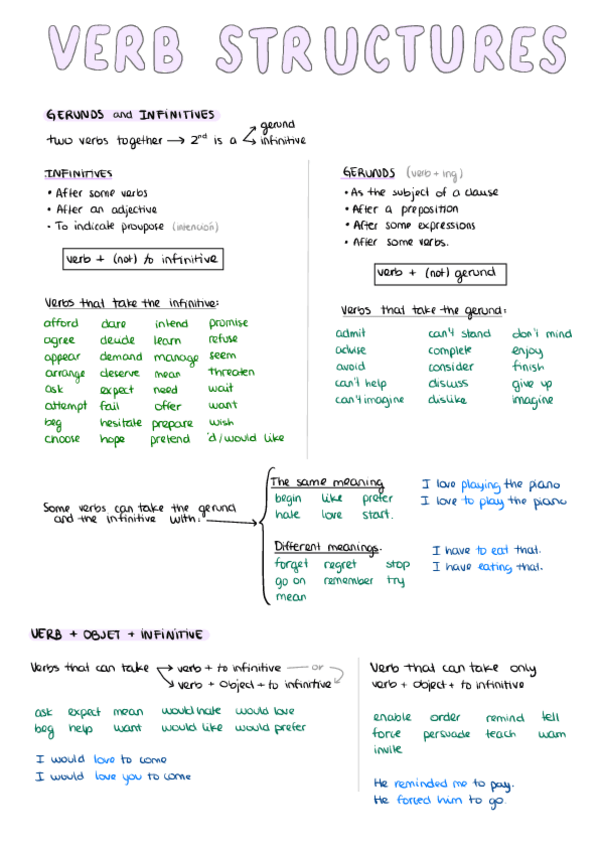 VERB STRUCTURES
GERUNDS and INFINITIVES
two verbs together → 2nd is a gerund
infinitive
INFINITIVES
• After some verbs
• After an adjective
• To indicate proupose (intención)
verb + (not) to infinitive
Verbs that take the infinitive:
afford dare intend promise
agree decide learn refuse
appear demand manage seem
arrange deserve mean threaten
ask expect need wait
attempt fail offer want
beg hesitate prepare wish
choose hope pretend 'd/would like
GERUNDS (verb + ing)
• As the subject of a clause
• After a preposition
• After some expressions
• After some verbs.
verb + (not) gerund
Verbs that take the gerund:
admit can't stand don't mind
advise complete enjoy
avoid consider finish
can't help discuss give up
can't imagine dislike imagine
Some verbs can take the gerund
and the infinitive with:
The same meaning
begin like prefer
hate love start.
I love playing the piano
I love to play the piano
Different meanings.
forget regret stop
go on remember try
mean
I have to eat that.
I have eating that.
VERB + OBJET + INFINITIVE
Verbs that can take → verb + to infinitive — or
verb + object + to infinitive
ask expect mean would hate would love
beg help want would like would prefer
I would love to come
I would love you to come
Verb that can take only
verb + object + to infinitive
enable order remind tell
force persuade teach warn
invite
He reminded me to pay.
He forced him to go.